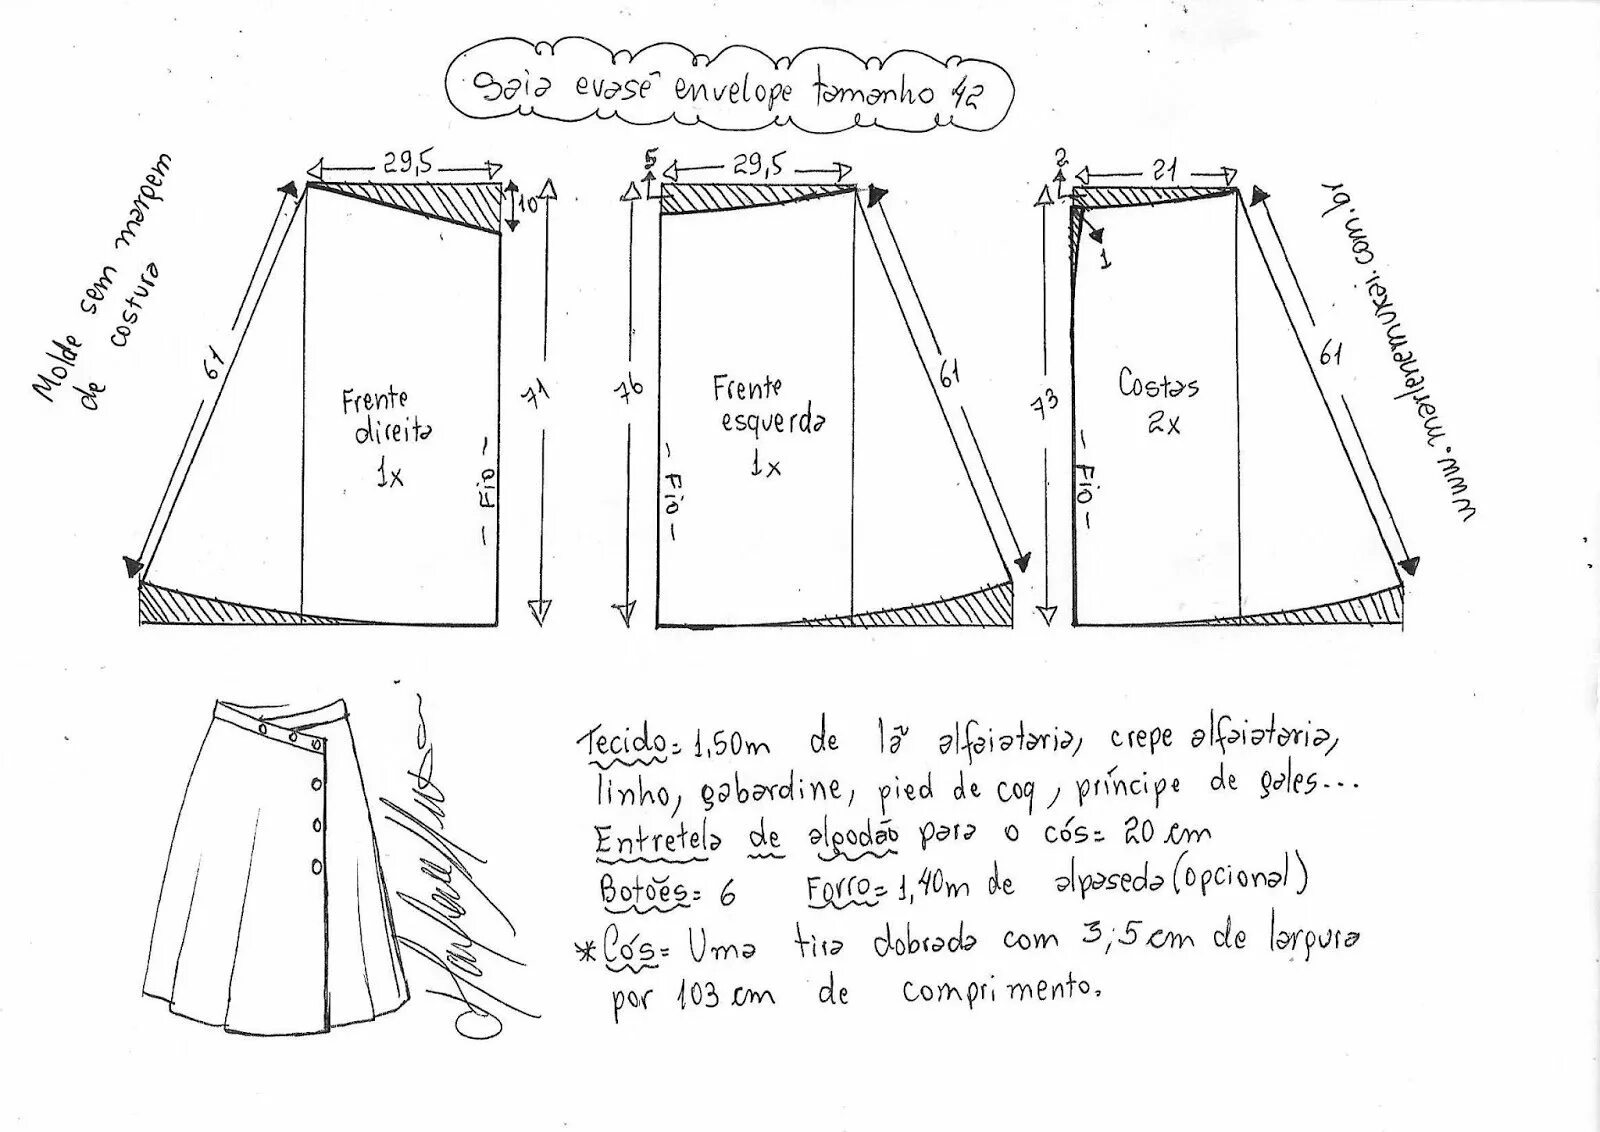 saia evasê envelope tamanho 42
Molde sem margem
de costura
29,5
10
61
71
Frente
direita
1x
- Fio -
5
29,5
76
61
Frente
esquerda
1x
- Fio -
2
21
1
73
61
Costas
2x
- Fio -
www.marlenemukai.com.br
Tecido= 1,50m de lã alfaiataria, crepe alfaiataria,
linho, gabardine, pied de coq, príncipe de gales...
Entretela de algodão para o cós= 20 cm
Botões= 6 Forro= 1,40m de alpaseda (opcional)
*Cós= Uma tira dobrada com 3,5 cm de largura
por 103 cm de comprimento.